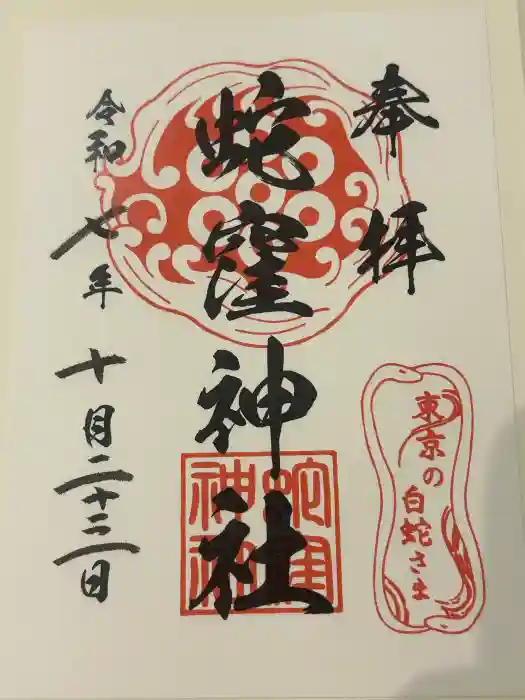 奉拝
蛇窪神社
令和七年十月二十二日
東京の
白蛇さま
蛇窪
神社